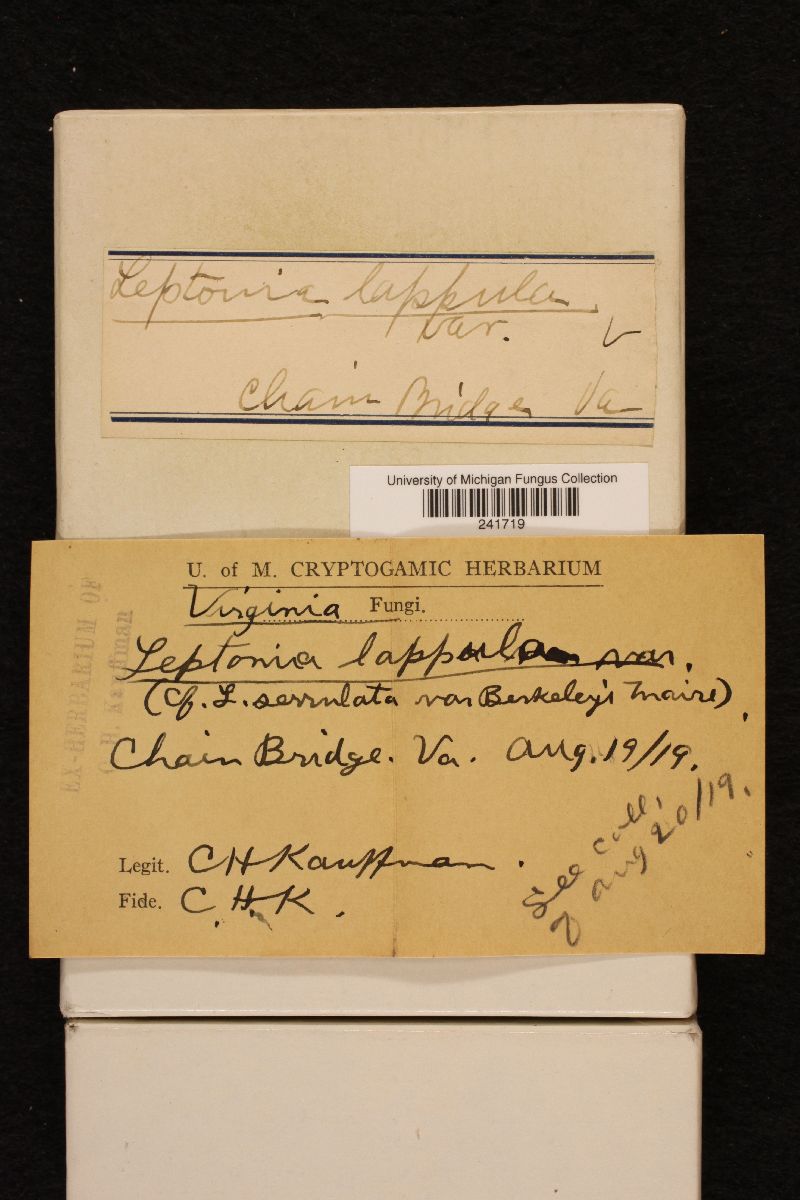 Leptonia lappula
var. v
Chain Bridge Va
University of Michigan Fungus Collection
241719
U. of M. CRYPTOGAMIC HERBARIUM
Virginia Fungi.
Leptonia lappula var.
(Cf. L. serrulata var Berkeleyi Maire)
Chain Bridge. Va. Aug. 19/19.
Legit. CHKauffman.
Fide. C. H. K.
See coll.
of aug 20/19.
EX-HERBARIUM OF
C. H. Kauffman